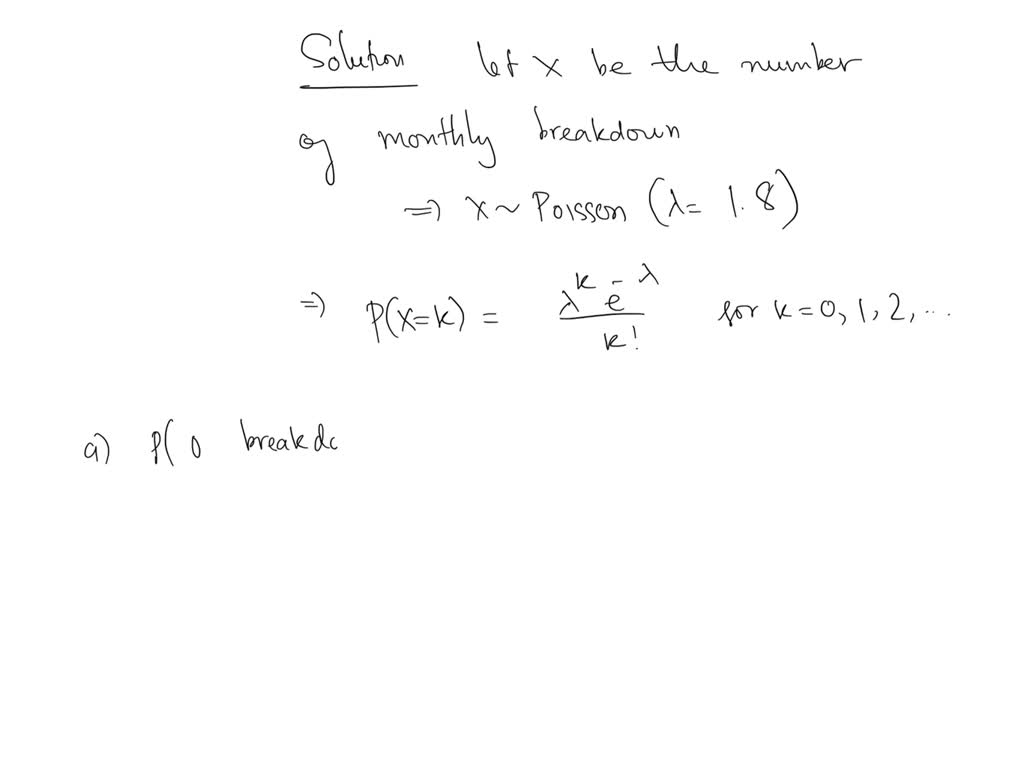 Solution let X be the number
of monthly breakdown
=> X ~ Poisson (λ = 1.8)
=> P(X=k) = λ^k e^-λ / k! for k = 0, 1, 2, ...
a) P( 0 breakdo